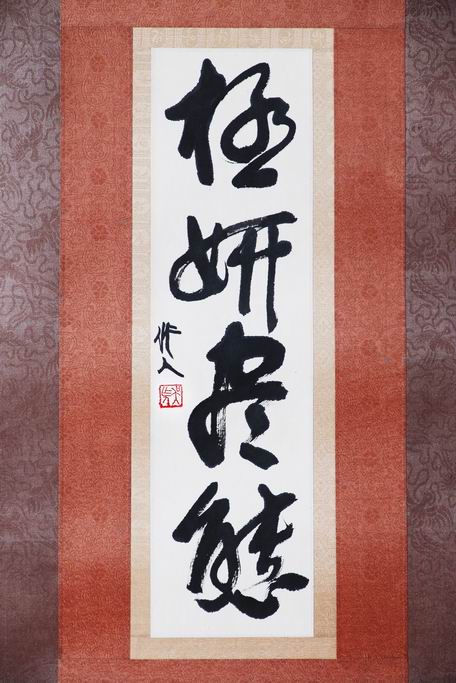 極妍尽態
作人